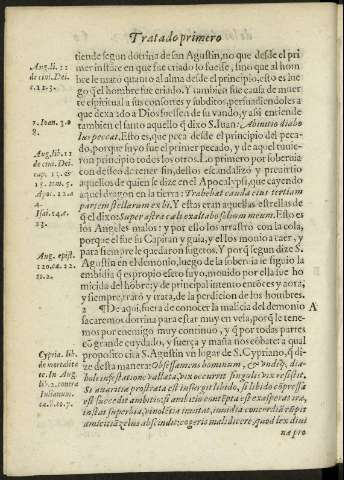 Tratado primero
tiende segun dotrina de san Agustin, no que desde el pri
mer instãte en que fue criado lo fuesse, sino que al hom
bre le mató quanto al alma desde el principio, esto es lue
go q̃ el hombre fue criado. Y tambien fue causa de muer
te espiritual a sus consortes y subditos, persuadiendoles a
que dexando a Dios fuessen de su vando, y assi entiende
tambien el santo aquello q̃ dixo S. Iuan: Ab initio diabo
lus peccat. Esto es, que peca desde el principio del peca-
do, porque suyo fue el primer pecado, y de aquel tuuie-
ron principio todos los otros. Lo primero por soberuia
con desseo de tener sin, destos escandalizó y peruirtio
aquellos de quien se dize en el Apocalypsi, que cayendo
aquel dragon en la tierra: Trahebat cauda eius tertiam
partem stellarum &c. Y estas eran aquellas estrellas de
q̃ el dixo: Super astra cæli exaltabo solium meum. Esto es
los Angeles malos: y por esso los arrastró con la cola,
porque el fue su Capitan y guia, y el los mouio a caer, y
para siempre le quedaron sugetos. Y porq̃ segun dize S.
Agustin en el demonio, luego de la soberuia se siguio la
embidia q̃ es propio efeto suyo, mouido por ella fue ho
micida del hõbre; y de principal intento entõces y aora,
y siempre, trató y trata, de la perdicion de los hombres.
2 ¶ De aqui, fuera de conocer la malicia del demonio
sacaremos dotrina para estar muy en vela, porq̃ le tene-
mos por enemigo muy continuo, y q̃ por todas partes
cõ grande cuydado, y fuerça y maña nos cõbate: a qual
proposito cita S. Agustin vn lugar de S. Cypriano, q̃ di-
ze desta manera: Obsessa mens hominum, & vndiq; dia-
boli infestatione vallata, vix occurrit singulis vix resistit,
Si auaritia prostrata est insurgit libido, si libido cõpressa
est succedit ambitio: si ambitio contẽpta est exasperat ira,
inflat superbia, vinolẽtia inuitat, inuidia concordiã rũpit
amicitiã zelus abscindit: cogeris maledicere quod lex diui
na pro
Aug. li. 11
de ciui. Dei.
c. 12. 3.
1. Ioan. 3. a
8.
Aug. lib. 11
de ciui. Dei.
Apo. 12. a
4.
Isai. 14. a
13.
Aug. epist.
120. ca. 22.
to. 2.
A
Cypria. lib.
de mortalita
te. In Aug.
lib. 2. contra
Iulianum.
ca. 8. to. 7.